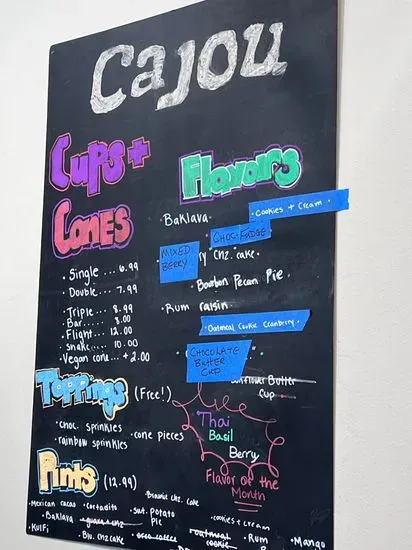 Cajou
Cups +
Cones
· Single ... 6.99
· Double ... 7.99
· Triple ... 8.99
· Bar .... 8.00
· Flight ... 12.00
· Shake .... 10.00
· Vegan cone ... + 2.00
Flavors
· Baklava
· Cookies + Cream ·
· CHOC. FUDGE
MIXED BERRY
ry chz. cake ·
· Bourbon Pecan Pie ·
· Rum raisin ·
· Oatmeal Cookie Cranberry ·
· CHOCOLATE BUTTER CUP
Sunflower Butter Cup ·
Toppings (Free!)
· choc. sprinkles
· rainbow sprinkles
· cone pieces
Thai
Basil
Berry
Flavor of the Month
Pints (12.99)
· Mexican cacao
· Baklava
· Kulfi
· Horchata
· Blu. chz cake
Brownie chz. cake
· Swt. Potato Pie
· cookies + cream
· oatmeal cookie
· Rum
· Mango